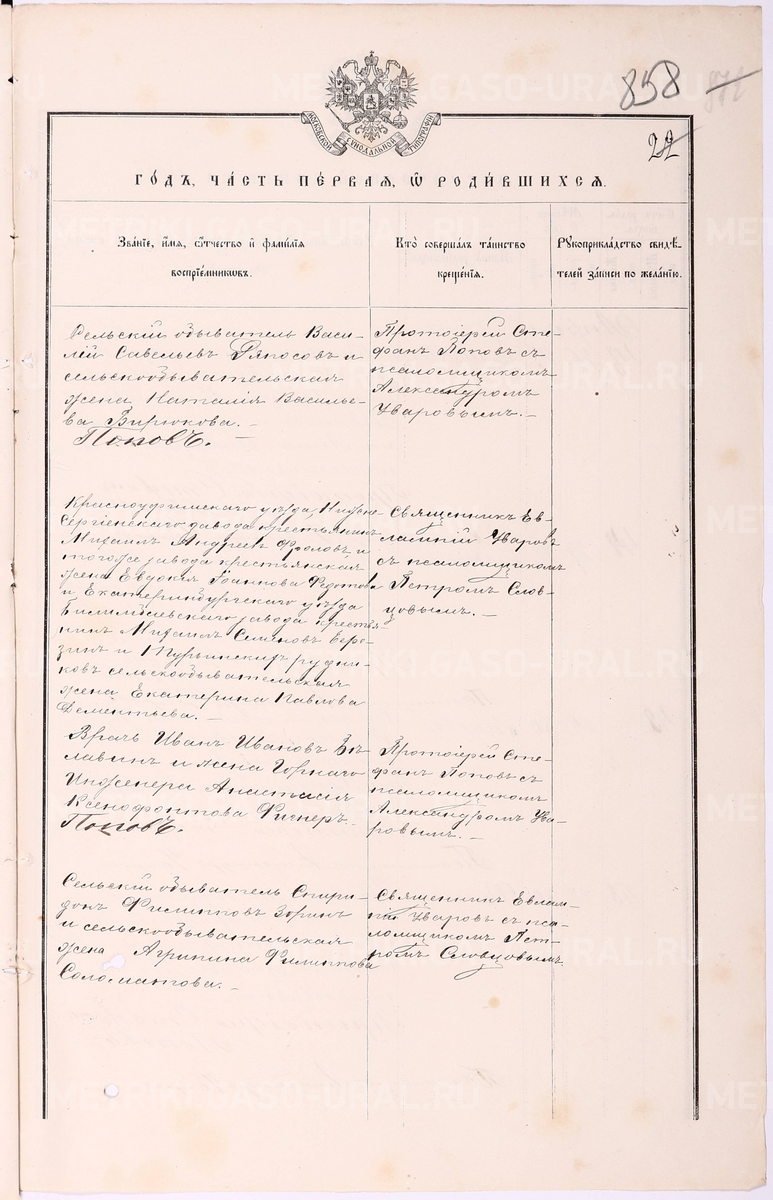 858
22
МОСКОВСКОЙ СѴНОДАЛЬНОЙ ТИПОГРАФІИ
ГО́ДЪ, ЧА́СТЬ ПЕ́РВАЯ, Ѡ РОДИ́ВШИХСЯ.
Зва́нїе, и́мя, ѻ́тчество и҆ фами́лїя
воспрїе́мникωвъ.
Кто̀ соверша́лъ та́инство
креще́нїя.
Рꙋкоприкла́дство свидѣ́-
телей за́писи по жела́нїю.
Сельскій обыватель Васи-
лій Савельевъ Ряпосовъ и
сельскообывательская
жена Наталія Василье-
ва Бирюкова. —
Поповъ. —
Протоіерей Сте-
фанъ Поповъ съ
псаломщикомъ
Александромъ
Уваровымъ. —
Красноуфимскаго уѣзда Нижне-
Сергіенскаго завода крестьянинъ
Михаилъ Андреевъ Фроловъ и
тогоже завода крестьянская
жена Евдокія Іоаннова Федотова
и Екатеринбургскаго уѣзда
Билимбаевскаго завода крестья-
нинъ Михаилъ Семеновъ Бере-
зинъ и Турьинскихъ рудни-
ковъ сельскообывательская
жена Екатерина Павлова
Дементьева. —
Священникъ Ев-
лампій Уваровъ
съ псаломщикомъ
Петромъ Слов-
цовымъ. —
Врачъ Иванъ Ивановъ Бѣ-
лавинъ и жена Горнаго
Инженера Анастасія
Ксенофонтова Фигнеръ.
Поповъ.
Протоіерей Сте-
фанъ Поповъ съ
псаломщикомъ
Александромъ Ува-
ровымъ. —
Сельскій обыватель Спири-
донъ Филипповъ Зоринъ
и сельскообывательская
жена Агрипина Филиппова
Соломанова. —
Священникъ Евлам-
пій Уваровъ съ пса-
ломщикомъ Пет-
ромъ Словцовымъ.
METRIKI.GASO-URAL.RU